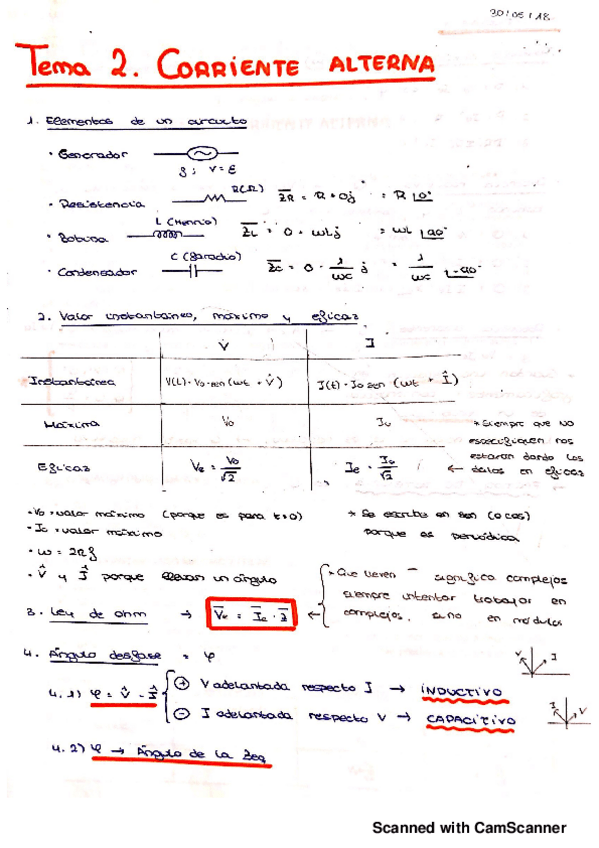 30/05/18
Tema 2. CORRIENTE ALTERNA
1. Elementos de un circuito
· Generador
f ; V = E
· Resistencia R(Ω) Z̄R = R + 0j = R ∠0°
· Bobina L (Henrio) Z̄L = 0 + ωLj = ωL ∠90°
· Condensador C (faradio) Z̄C = 0 - 1/ωC j = 1/ωC ∠-90°
2. Valor instantáneo, máximo y eficaz
V I
Instantánea V(t) = Vo · sen (ωt + V̂) I(t) = Io sen (ωt + Î)
Máxima Vo Io
Eficaz Ve = Vo/√2 Ie = Io/√2
* Siempre que no
especifiquen nos
estarán dando los
← datos en eficaz
· Vo = valor máximo (porque es para t=0)
· Io = valor máximo
· ω = 2πf
· V̂ y Î porque llevan un ángulo
* Se escribe en sen (o cos)
porque es periódica
· Que lleven — significa complejos
siempre intentar trabajar en
complejos, si no en módulos
3. Ley de ohm → V̄e = Īe · Z̄ ←
4. Ángulo desfase = φ
4.1) φ = V̂ - Î
⊕ V adelantada respecto I → INDUCTIVO
⊖ I adelantada respecto V → CAPACITIVO
V I
I V
4.2) φ → Ángulo de la Zeq
Scanned with CamScanner